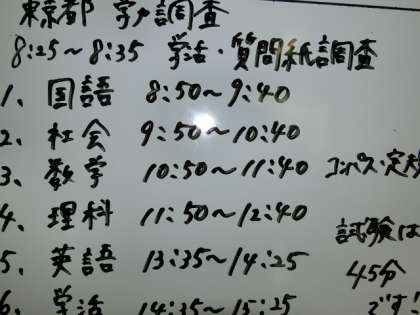 東京都 学力調査
8:25〜8:35 学活・質問紙調査
1、国語 8:50〜9:40
2、社会 9:50〜10:40
3、数学 10:50〜11:40 コンパス・定
4、理科 11:50〜12:40
試験は
5、英語 13:35〜14:25
45分
6、学活 14:35〜15:25
です!